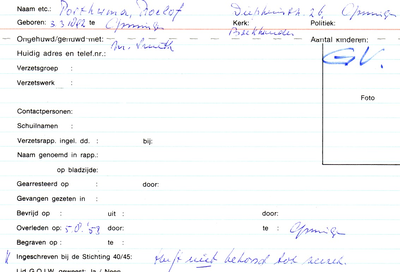 Naam etc.: Roelof
Geboren: 3.3.1882 te Kerk: Politiek:
Boekhouder
Ongehuwd/gehuwd met: Aantal kinderen:
Huidig adres en telef.nr.: G.V.
Verzetsgroep :
Verzetswerk :
Foto
Contactpersonen:
Schuilnamen :
Verzetsrapp. ingel. dd. : bij:
Naam genoemd in rapp.:
op bladzijde:
Gearresteerd op : door:
Gevangen gezeten in :
Bevrijd op : uit : door:
Overleden op: 5.8.'53 door: te :
Begraven op : te :
Ingeschreven bij de Stichting 40/45: Heeft niet behoord tot
Lid G.O.I.W. geweest: Ja / Neen